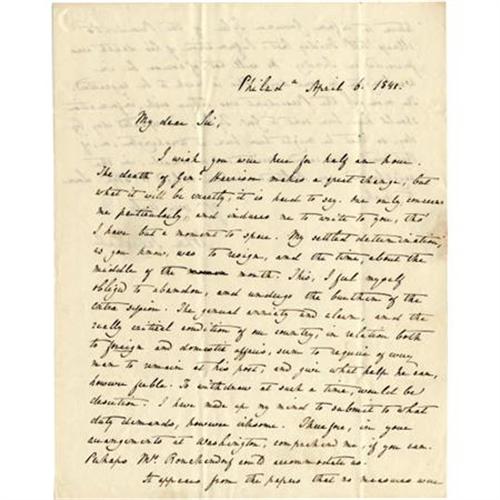 Philad.ª April 6. 1841.
My dear Sir,
I wish you were here for half an hour.
The death of Gen.l Harrison makes a great change; but
what it will be exactly, it is hard to say. One only concerns
me particularly, and induces me to write to you, tho'
I have but a moment to spare. My settled determination,
as you know, was to resign, and the time, about the
middle of the month. This, I feel myself
obliged to abandon, and undergo the burthen of the
extra session. The general anxiety and alarm, and the
really critical condition of our country, in relation both
to foreign and domestic affairs, seem to require of every
man to remain at his post, and give what help he can,
however feeble. To withdraw at such a time, would be
desertion. I have made up my mind to submit to what
duty demands, however irksome. Therefore, in your
arrangements at Washington, comprehend me, if you can.
Perhaps Mrs. could accommodate us.
It appears from the papers that no measures were